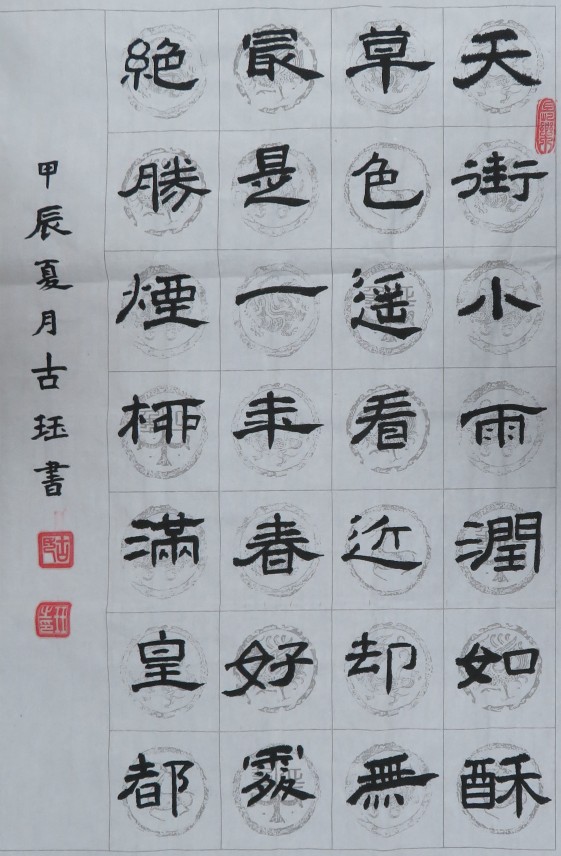 天街小雨潤如酥
草色遥看近却無
最是一年春好處
絕勝煙柳滿皇都
甲辰夏月古珏書